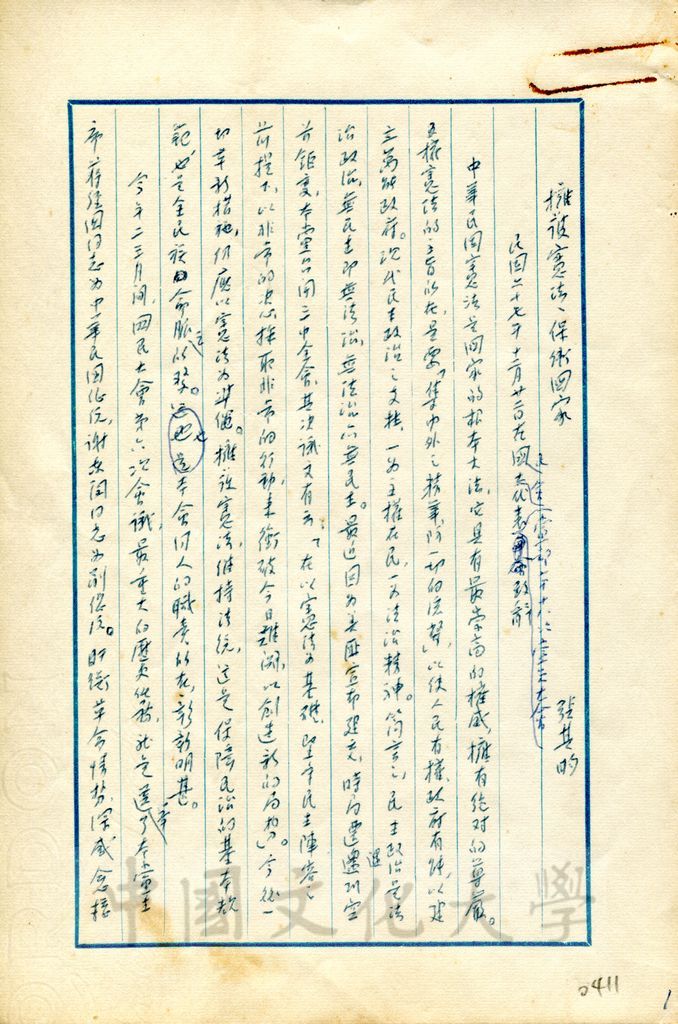 擁護憲法、保衛國家
張其昀
民國六十七年十二月廿二日在國大代表
黨部二十
黨員大會
中華民國憲法是國家的根本大法,它具有最崇高的權威,擁有絕對的尊嚴。
五權憲法的主旨所在,是要「集中外之精華,防一切的流弊」,以使人民有權,政府有能,以建
立萬能政府。現代民主政治之支柱,一為主權在民,一為法治精神。簡言之,民主政治是法
治政治,無民主即無法治,無法治亦無民主。最近因為美匪宣布建交,時局遭遇到空
前鉅變,本黨召開三中全會,其決議文有云:「在以憲法為基礎,堅守民主陣容之
前提下,以非常的決心採取非常的行動,來衝破今日難關,以創造新的局勢」。今後一
切革新措施,仍應以憲法為準繩。擁護憲法,維持法統,這是保障民治的基本軌
範,也是全民族之命脈所繫。這也是本會同人的職責所在,彰彰明甚。
今年二三月間,國民大會第六次會議,最重大的歷史任務,就是選舉了本黨主
席蔣經國同志為中華民國總統,謝東閔同志為副總統。盱衡革命情勢,深感念
中國文化大學
0411
1